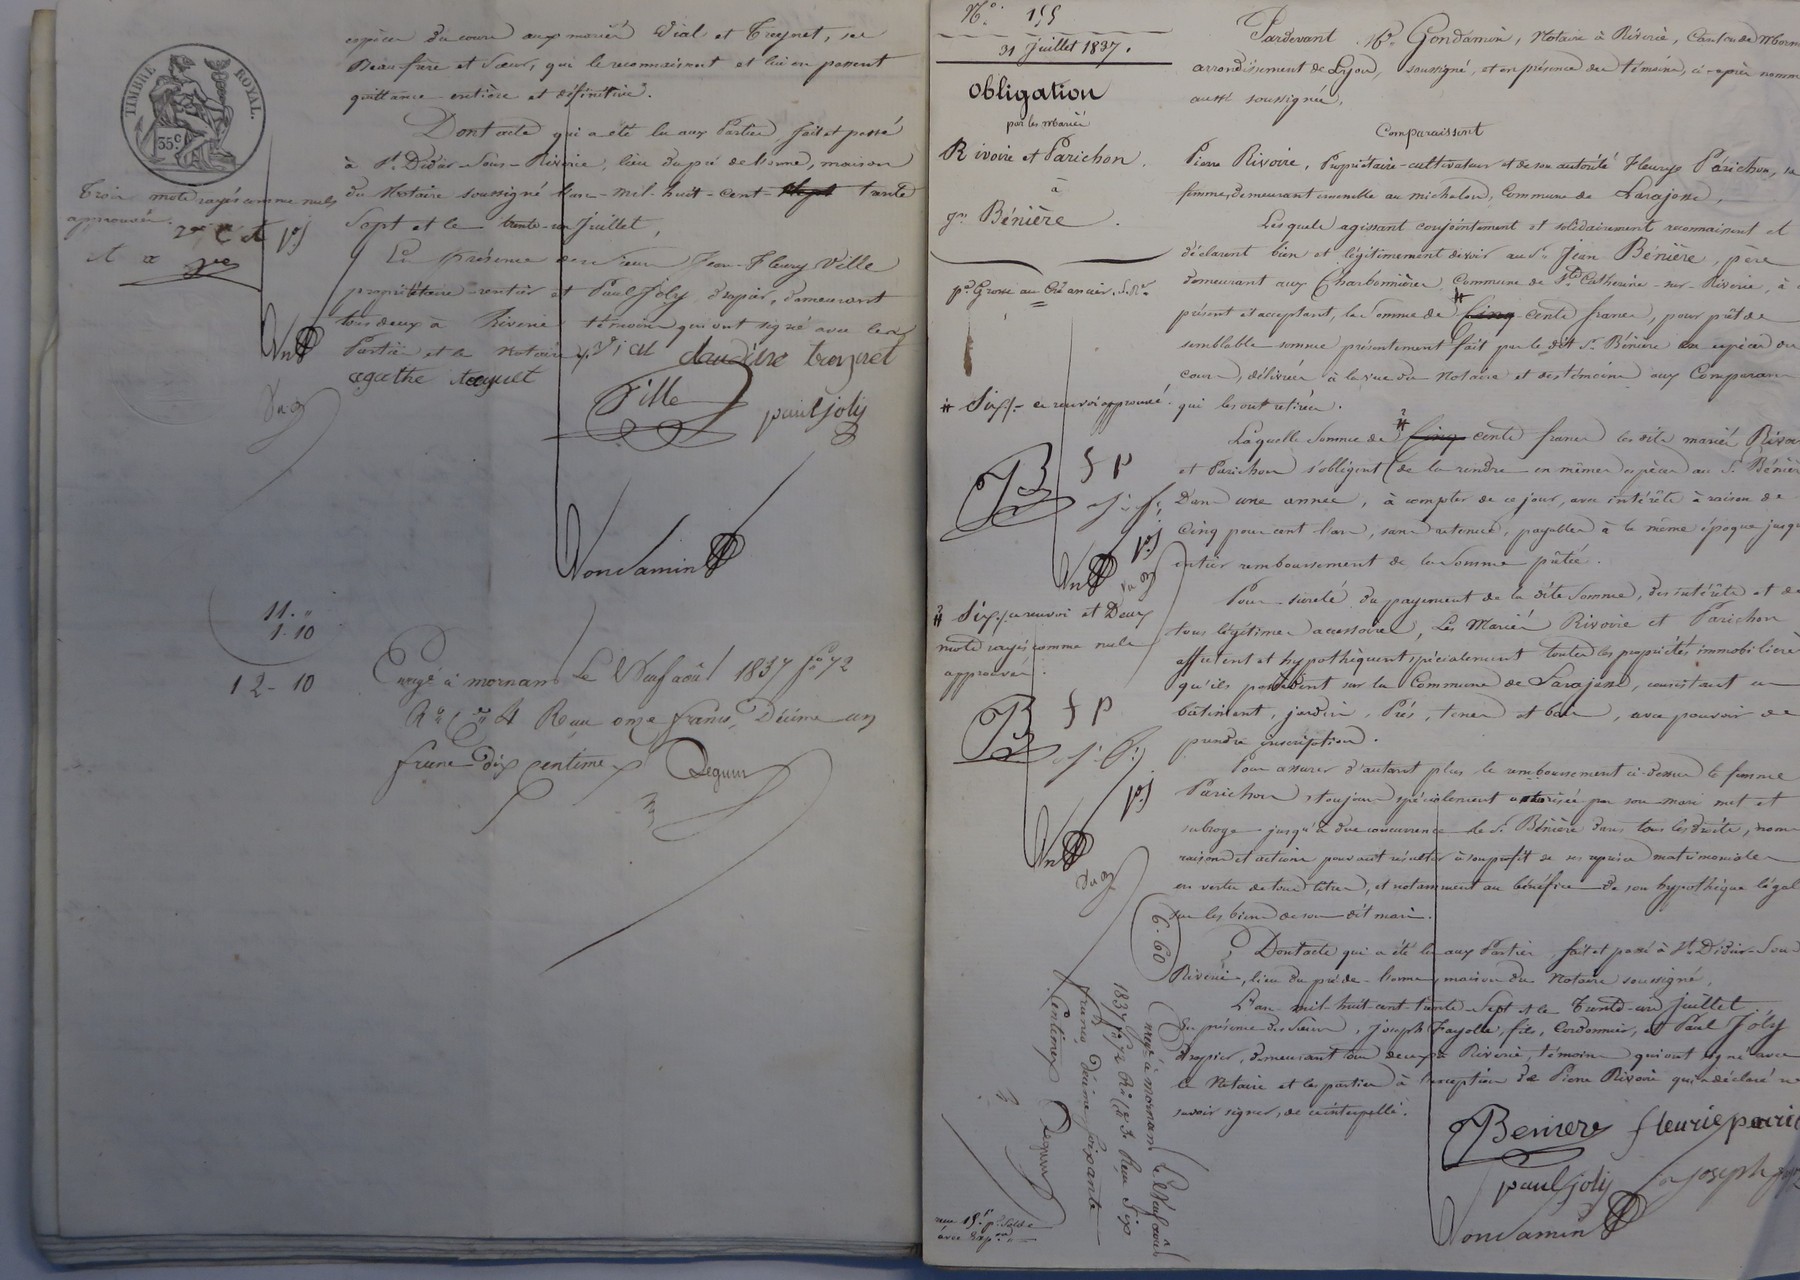 TIMBRE ROYAL.
35c
espèces du cours aux mariés Vial et Treynet, ses
Beau-frère et Sœur, qui le reconnaissent et lui en passent
quittance entière et définitive.
Dont acte qui a été lu aux Parties fait et passé
à St. Didier-Sous-Riverie, lieu du pré de lorme, maison
du Notaire soussigné l'an mil-huit-cent trente
Sept et le trente-un Juillet,
En présence des Sieurs Jean-Fleury Ville
propriétaire-rentier et Paul Joly, drapier, demeurant
tous deux à Riverie témoins qui ont signé avec les
Parties et le Notaire. Vial claudine treynet
agathe
Ville
paul joly
Trois mots rayés comme nuls
approuvés.
Gondamin
11. "
1. 10
12 - 10
Enregé à mornant Le Neuf août 1837 fo 72
Ro Ce 4 Reçu onze francs, Décime un
franc dix centimes Deguin
No. 155
31 Juillet 1837.
Obligation
par les Mariés
Rivoire et Parichon.
à
Sr. Bénière.
pr Grosse au Créancier
# Six /. ce renvoi approuvé.
B f p
j. f.
p. j
#2 Six /. ce renvoi et Deux
mots rayés comme nuls
approuvés.
B f p
j. f.
p. j
Pardevant Me. Gondamin, Notaire à Riverie, Canton de Morn
arrondissement de Lyon, soussigné, et en présence des témoins, ci-après nomm
aussi soussignés,
Comparaissent
Pierre Rivoire, Propriétaire-cultivateur et de son autorité Fleurye Parichon, sa
femme, demeurant ensemble au michelon, Commune de Larajasse,
Lesquels agissant conjointement et solidairement reconnaissent et
déclarent bien et légitimement devoir au Sr. Jean Bénière, père
demeurant aux Charbonnières, Commune de Ste. Catherine-sur-Riverie, à c
présent et acceptant, la Somme de # cinq cents francs, pour prêt de
semblable somme présentement fait par le dit Sr. Bénière en espèces du
cours, délivrées à la vue du Notaire et des témoins aux Comparan
qui les ont retirées.
Laquelle Somme de #2 cinq cents francs les dits mariés Rivoi
et Parichon s'obligent de la rendre en mêmes espèces au Sr. Bénièr
Dans une année, à compter de ce jour, avec intérêts à raison de
Cinq pour cent l'an, sans retenue, payables à la même époque jusqu
entier remboursement de la Somme prêtée.
Pour sureté du payement de la dite Somme, des intérêts et de
tous légitimes accessoires, Les Mariés Rivoire et Parichon
affectent et hypothèquent spécialement toutes les propriétés immobilière
qu'ils possèdent sur la Commune de Larajasse, consistant en
bâtiment, jardin, Prés, terres et bois, avec pouvoir de
prendre inscription.
Pour assurer d'autant plus le remboursement ci-dessus la femme
Parichon, toujours spécialement autorisée par son mari met et
subroge jusqu'à due concurrence le Sr. Bénière dans tous les droits, noms
raisons et actions pouvant résulter à son profit de ses reprises matrimoniales
en vertu de tous titres, et notamment au bénéfice de son hypothèque légal
sur les biens de son dit mari.
Dont acte qui a été lu aux Parties, fait et passé à St. Didier-Sous
Riverie, lieu du pré de lorme, maison du Notaire soussigné,
L'an mil-huit-cent-trente-Sept et le Trente-un juillet,
En présence des Sieurs, Joseph Fayolle, fils, Cordonnier, et Paul Joly
drapier, demeurant tous deux à Riverie, témoins qui ont signé avec
le Notaire et les parties à l'exception de Pierre Rivoire qui a déclaré ne
savoir signer, de ce interpellé.
Beniere fleurie paric
paul joly joseph
Gondamin
6.60
Enregé à mornant Le Neuf août
1837 fo 72 Ro Ce 3 Reçu Six
francs Décime soixante
Centimes Deguin